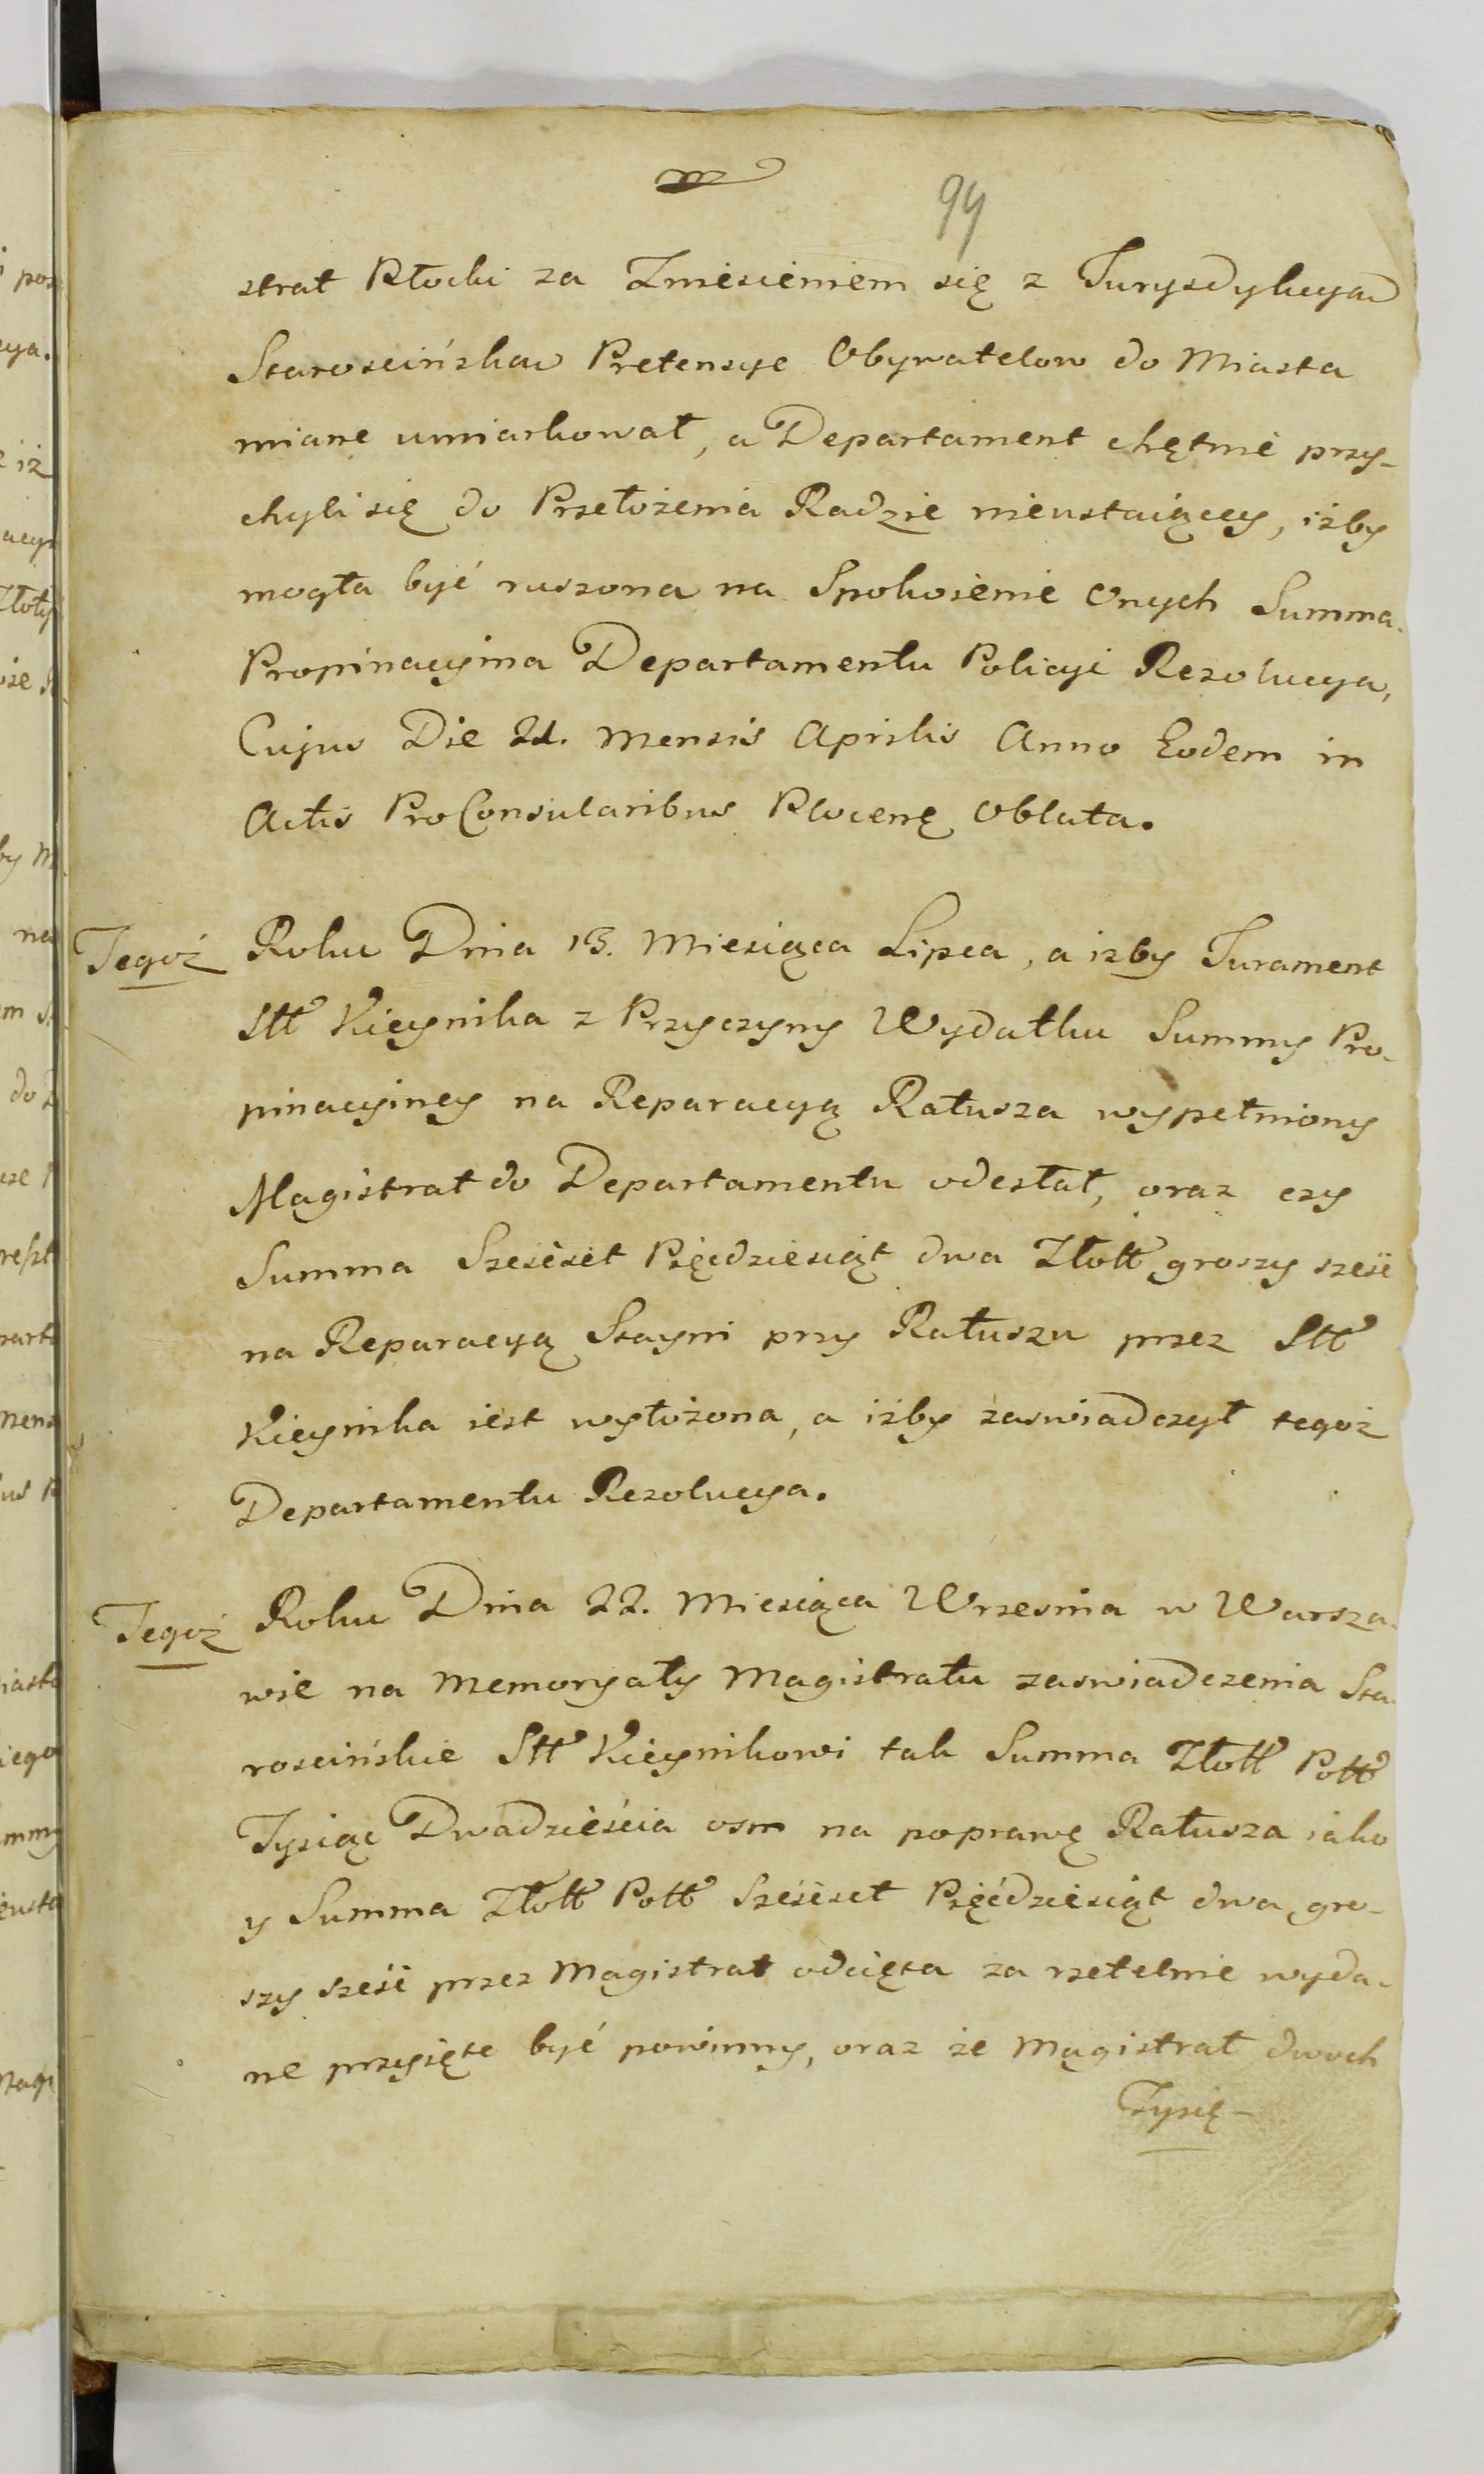 94
strat Płocki za Zniesieniem się z Jurysdykcyą
Staroscińską Pretensye Obywatelow do Miasta
miane umiarkował, a Departament chętnie przy-
chyli się do Przełożenia Radzie nieustaiącey, iżby
mogła być ruszona na Spokoienie Onych Summa
Propinacyina Departamentu Policyi Rezolucya,
Cujus Die 21. Mensis Aprilis Anno Eodem in
Actis ProConsularibus Plocenę Oblata.
Tegoż Roku Dnia 13. Miesiąca Lipca, a iżby Jurament
Stt Kieynika z Przyczyny Wydatku Summy Pro-
pinacyiney na Reparacyą Ratusza wypełniony
Magistrat do Departamentu odesłał, oraz czy
Summa Sześćset Pięćdziesiąt dwa Złott groszy sześć
na Reparacyą Stayni przy Ratuszu przez Stt
Kieynika iest wyłożona, a iżby zaswiadczył tegoż
Departamentu Rezolucya.
Tegoż Roku Dnia 22. Miesiąca Wrzesnia w Warsza-
wie na Memoryały Magistratu zaswiadczenia Sta-
roscińskie Stt Kieynikowi tak Summa Złott Pottt
Tysiąc Dwadzieścia osm na poprawę Ratusza iako
y Summa Złott Pott Sześćset Pięćdziesiąt dwa, gro-
szy sześć przez Magistrat odcięta za rzetelnie wyda-
ne przyięte być powinny, oraz że Magistrat dwoch
Tysię-